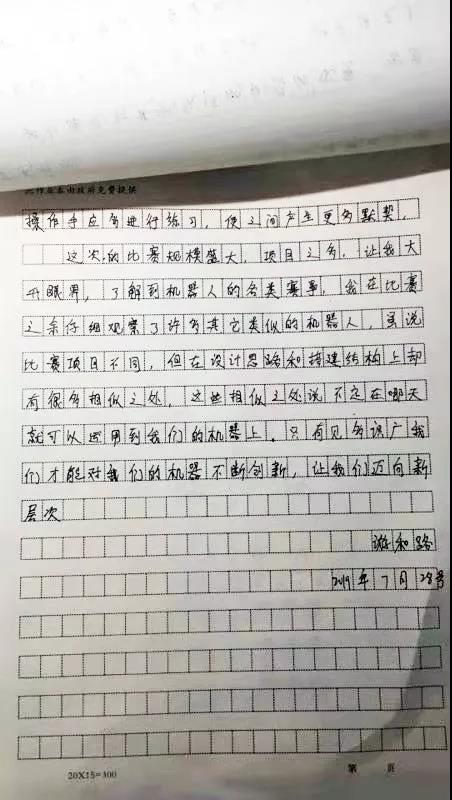 此作业本由政府免费提供
操作手应多进行练习，使之间产生更多默契。
这次的比赛规模盛大，项目之多，让我大
开眼界，了解到机器人的各类赛事，我在比赛
之余仔细观察了许多其它类似的机器人，虽说
比赛项目不同，但在设计思路和搭建结构上却
有很多相似之处，这些相似之处说不定在哪天
就可以运用到我们的机器上，只有见多识广我
们才能对我们的机器不断创新，让我们迈向新
层次
游和路
2019年7月28号
20X15=300
第 页